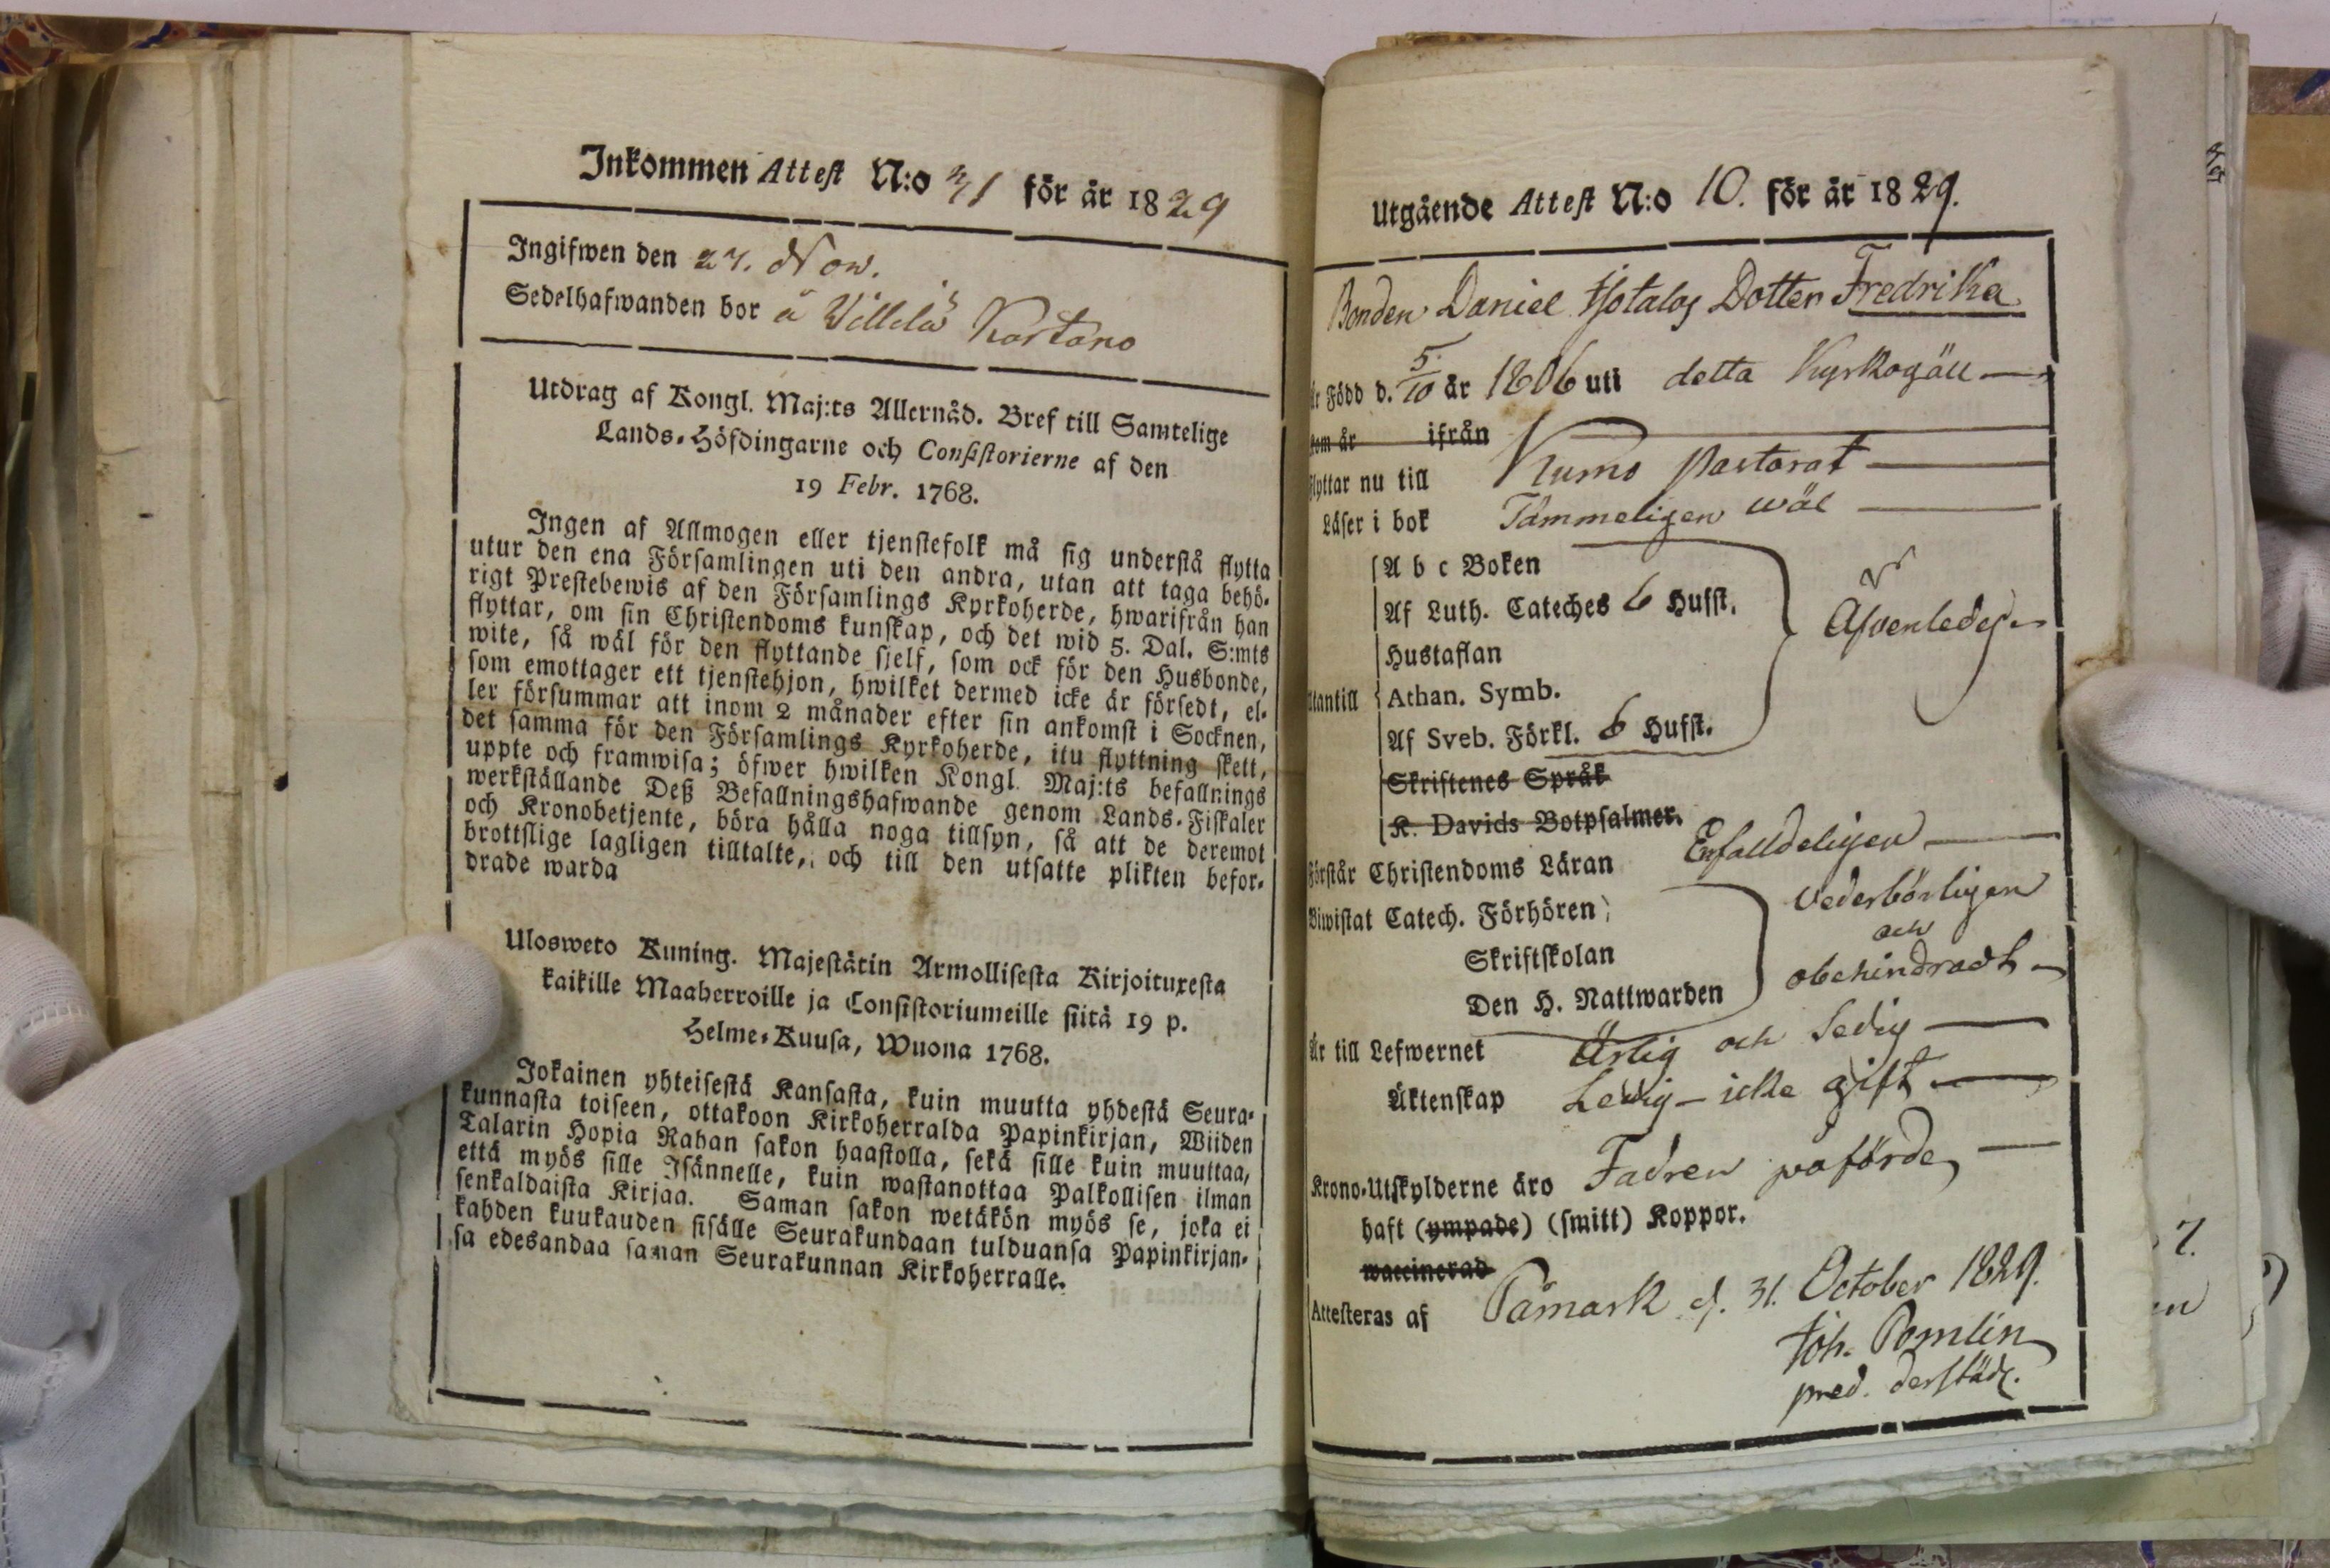 Inkommen Attest N:o 31 för år 1829
Ingifwen den 27. Now.
Sedelhafwanden bor å Villilä Kartano
Utdrag af Kongl. Maj:ts Allernåd. Bref till Samtelige
Lands-Höfdingarne och Consistorierne af den
19 Febr. 1768.
Ingen af Allmogen eller tjenstefolk må sig understå flytta
utur den ena Församlingen uti den andra, utan att taga behö-
rigt Prestebewis af den Församlings Kyrkoherde, hwarifrån han
flyttar, om sin Christendoms kunskap, och det wid 5. Dal. S:mts
wite, så wäl för den flyttande sjelf, som ock för den Husbonde,
som emottager ett tjenstehjon, hwilket dermed icke är försedt, el-
ler försummar att inom 2 månader efter sin ankomst i Socknen,
det samma för den Församlings Kyrkoherde, itu flyttning skett,
uppte och framwisa; öfwer hwilken Kongl. Maj:ts befallnings
werkställande Deß Befallningshafwande genom Lands-Fiskaler
och Kronobetjente, böra hålla noga tillsyn, så att de deremot
brottslige lagligen tilltalte, och till den utsatte plikten befor-
drade warda
Ulosweto Kuning. Majestätin Armollisesta Kirjoituxesta
kaikille Maaherroille ja Consistoriumeille siitä 19 p.
Helme-Kuusa, Wuona 1768.
Jokainen yhteisestä Kansasta, kuin muutta yhdestä Seura-
kunnasta toiseen, ottakoon Kirkoherralda Papinkirjan, Wiiden
Talarin Hopia Rahan sakon haastolla, sekä sille kuin muuttaa,
että myös sille Isännelle, kuin wastanottaa Palkollisen ilman
senkaldaista Kirjaa. Saman sakon wetäkön myös se, joka ei
kahden kuukauden sisälle Seurakundaan tulduansa Papinkirjan-
sa edesandaa saman Seurakunnan Kirkoherralle.
Utgående Attest N:o 10. för år 1829.
Bonden Daniel Dotter Fredrika
är Född d. 5/10 år 1806 uti detta Kyrkogäll
som år ifrån
flyttar nu till Kumo Pastorat
Läser i bok Tämmeligen wäl
A b c Boken
Af Luth. Cateches 6 Hufst.
Hustaflan
Utantill Athan. Symb.
Af Sveb. Förkl. 6 Hufst.
Äfvenledes
Skriftenes Språk
K. Davids Botpsalmer.
Förstår Christendoms Läran Enfalldeligen
Biwistat Catech. Förhören
Skriftskolan
Den H. Nattwarden
Vederbörligen
och
obehindradt
är till Lefwernet Ärlig och Sedig
Äktenskap Ledig – icke gift
Krono-Utskylderne äro Fadren påförde
haft (ympade) (smitt) Koppor.
waccinerad
Attesteras af Påmark d. 31. October 1829.
Joh. Pomlin
pred. derstäd.
7.